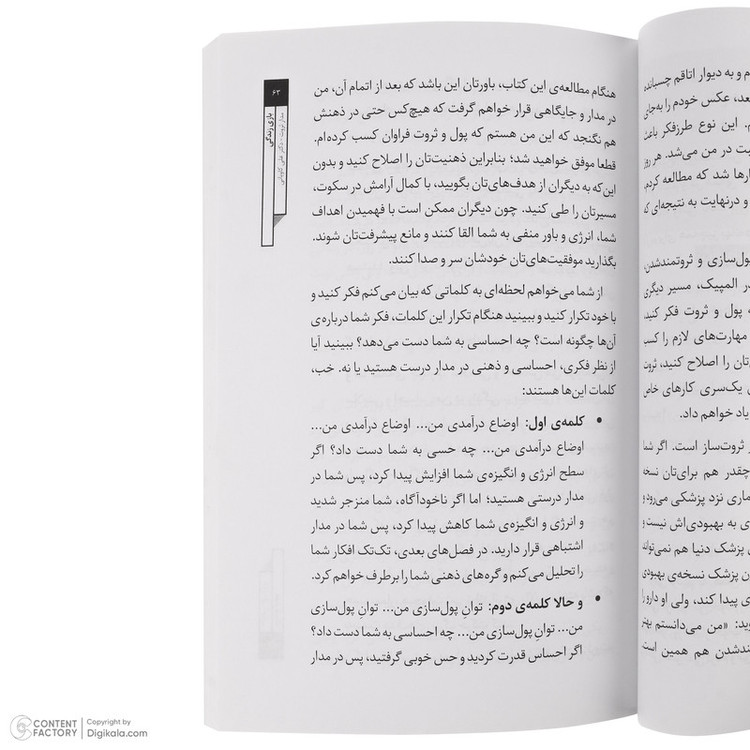 م و به دیوار اتاقم چسبانده
بعد، عکس خودم را به‌جای
م. این نوع طرزفکر باعث
بت در من می‌شد. هر روز
ارها شد که مطالعه کردم،
و درنهایت به نتیجه‌ای که
پول‌سازی و ثروتمندشدن
در المپیک، مسیر دیگری
ه پول و ثروت فکر کنید،
مهارت‌های لازم را کسب
تان را اصلاح کنید، ثروت
ی یک‌سری کارهای خاص
یاد خواهم داد.
ر ثروت‌ساز است. اگر شما
چقدر هم برای‌تان نسخه
ماری نزد پزشکی می‌رود و
ی به بهبودی‌اش نیست و
ی پزشک دنیا هم نمی‌تواند
ن پزشک نسخه‌ی بهبودی
ی پیدا کند، ولی او دارو را
وید: «من می‌دانستم بهتر
ندشدن هم همین است.
۶۳
بازی زندگی
هنگام مطالعه‌ی این کتاب، باورتان این باشد که بعد از اتمام آن، من
در مدار و جایگاهی قرار خواهم گرفت که هیچ‌کس حتی در ذهنش
هم نگنجد که این من هستم که پول و ثروت فراوان کسب کرده‌ام.
قطعا موفق خواهید شد؛ بنابراین ذهنیت‌تان را اصلاح کنید و بدون
این‌که به دیگران از هدف‌های‌تان بگویید، با کمال آرامش در سکوت،
مسیرتان را طی کنید. چون دیگران ممکن است با فهمیدن اهداف
شما، انرژی و باور منفی به شما القا کنند و مانع پیشرفت‌تان شوند.
بگذارید موفقیت‌های‌تان خودشان سر و صدا کنند.
از شما می‌خواهم لحظه‌ای به کلماتی که بیان می‌کنم فکر کنید و
با خود تکرار کنید و ببینید هنگام تکرار این کلمات، فکر شما درباره‌ی
آن‌ها چگونه است؟ چه احساسی به شما دست می‌دهد؟ ببینید آیا
از نظر فکری، احساسی و ذهنی در مدار درست هستید یا نه. خب،
کلمات این‌ها هستند:
• کلمه‌ی اول: اوضاع درآمدی من... اوضاع درآمدی من...
اوضاع درآمدی من... چه حسی به شما دست داد؟ اگر
سطح انرژی و انگیزه‌ی شما افزایش پیدا کرد، پس شما در
مدار درستی هستید؛ اما اگر ناخودآگاه، شما منزجر شدید
و انرژی و انگیزه‌ی شما کاهش پیدا کرد، پس شما در مدار
اشتباهی قرار دارید. در فصل‌های بعدی، تک‌تک افکار شما
را تحلیل می‌کنم و گره‌های ذهنی شما را برطرف خواهم کرد.
• و حالا کلمه‌ی دوم: توانِ پول‌سازی من... توانِ پول‌سازی
من... توانِ پول‌سازی من... چه احساسی به شما دست داد؟
اگر احساس قدرت کردید و حس خوبی گرفتید، پس در مدار
CONTENT FACTORY
Copyright by
Digikala.com